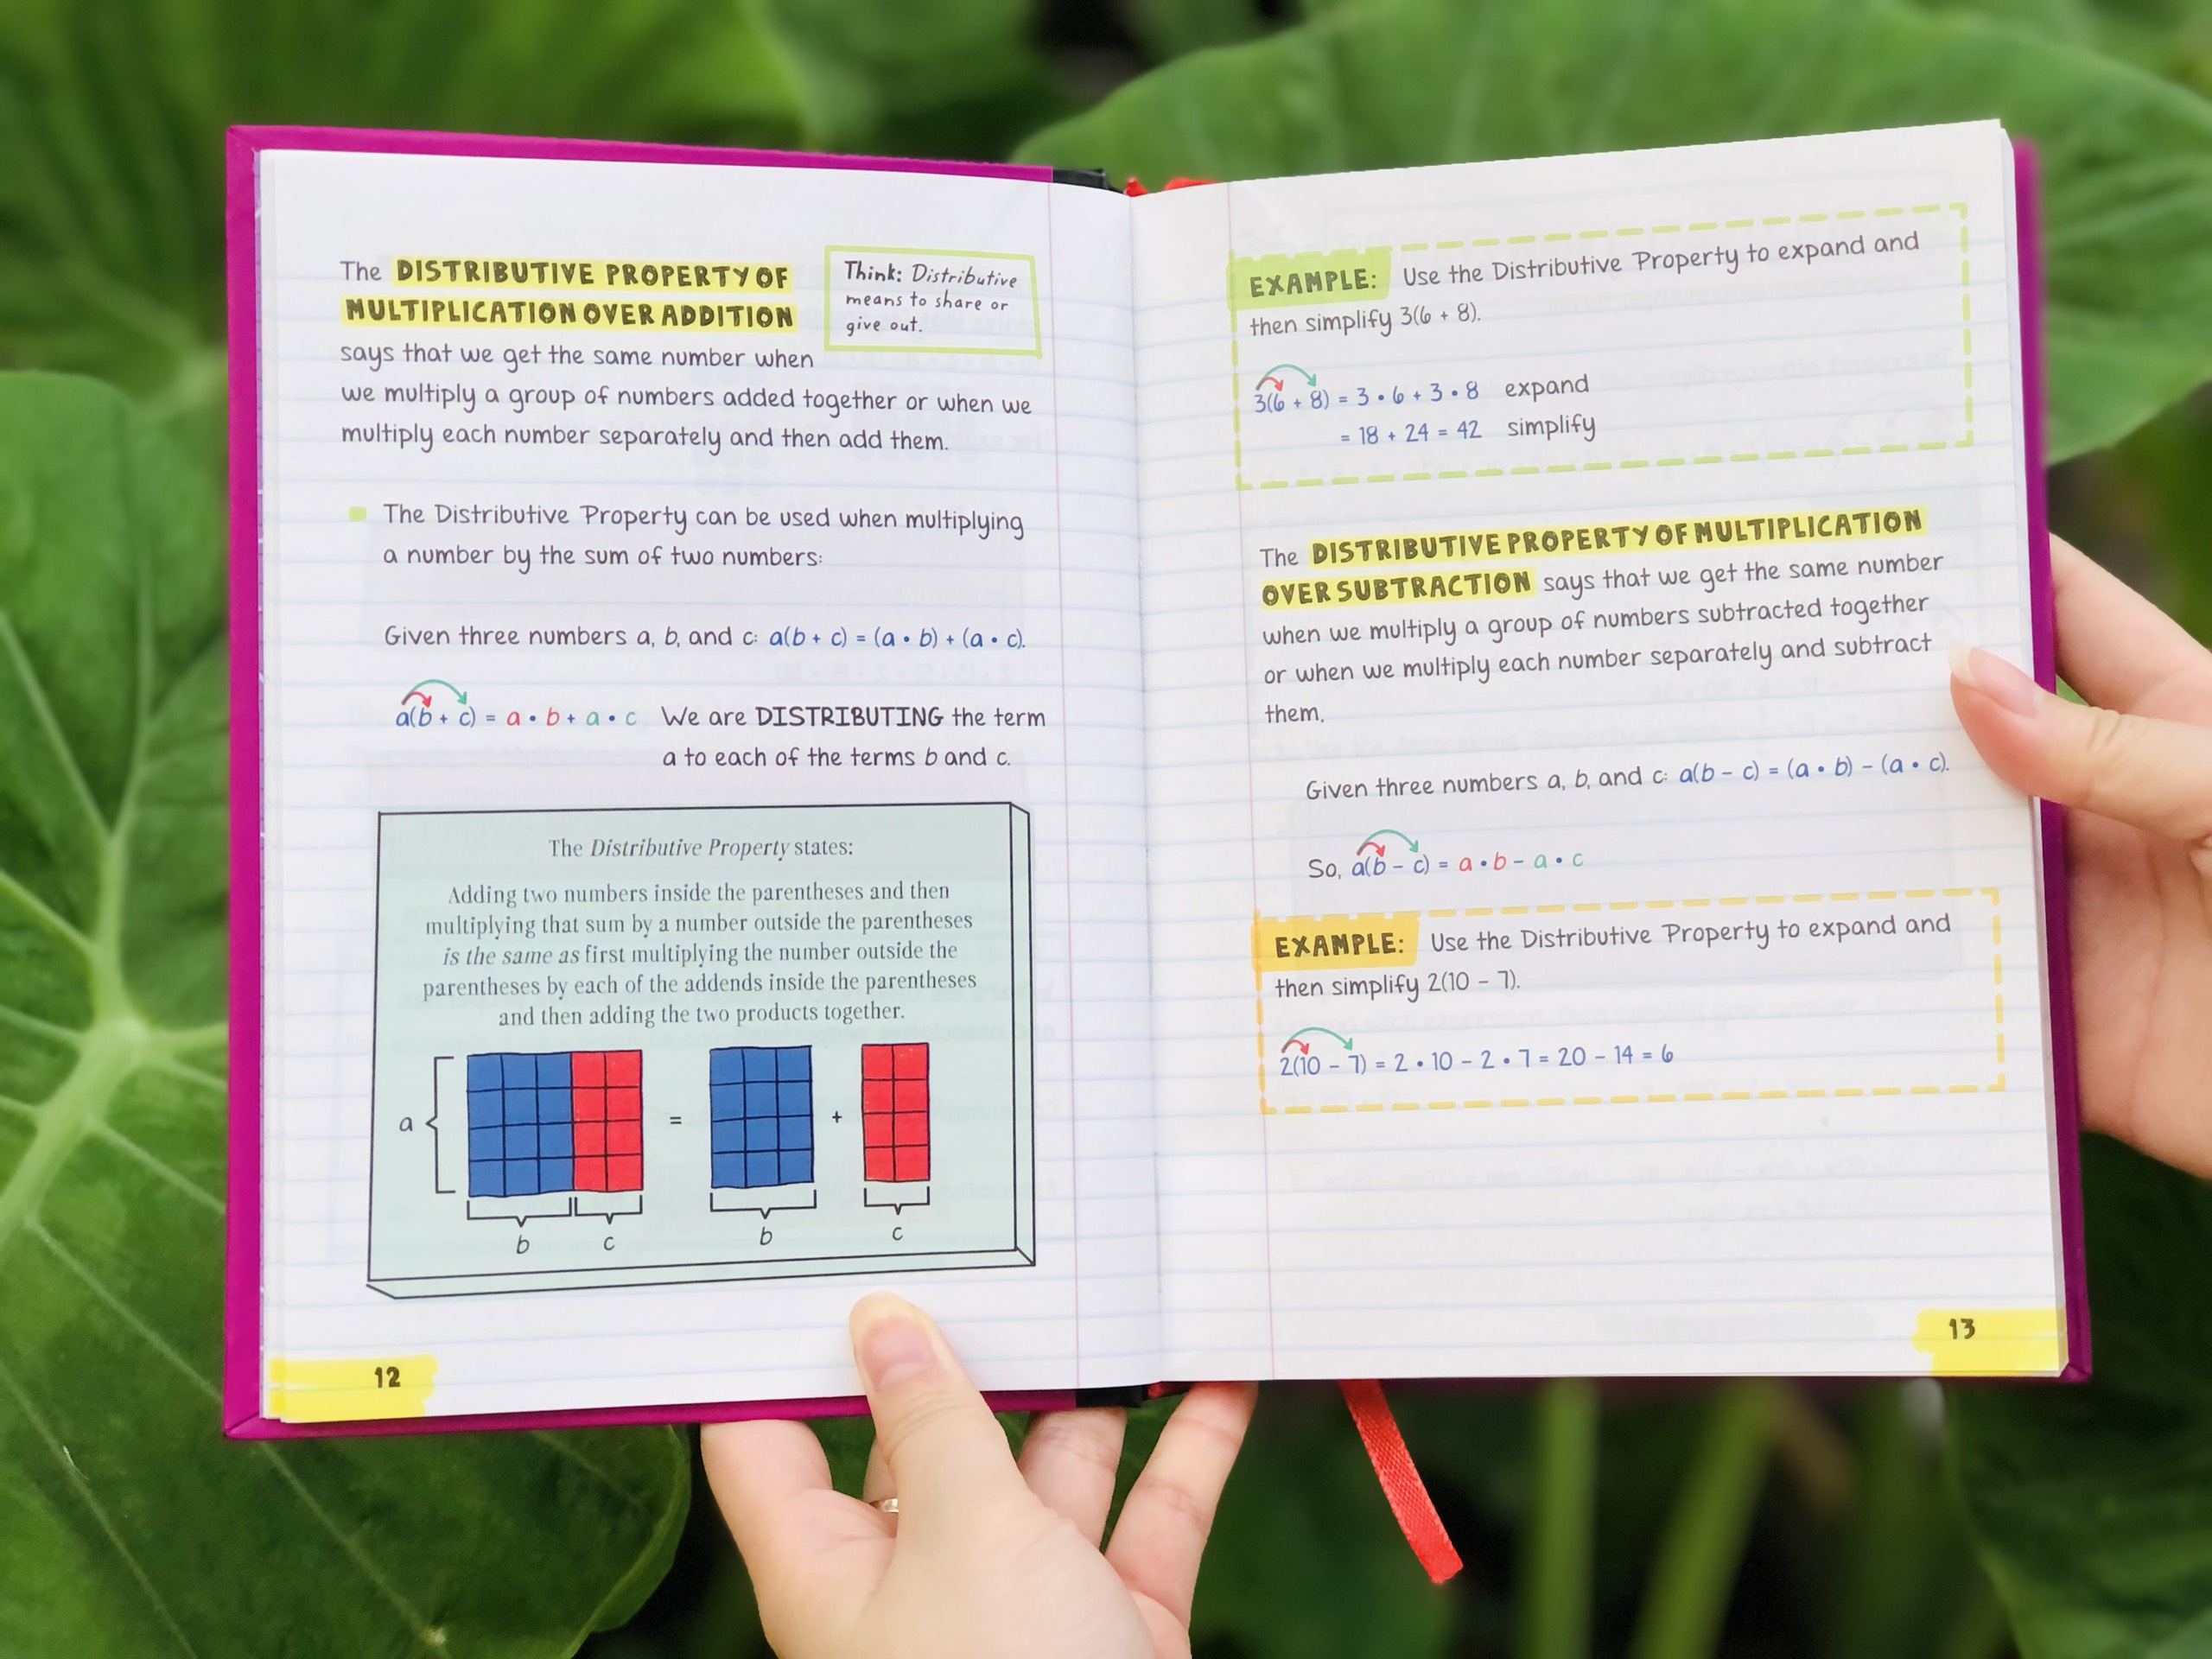 The DISTRIBUTIVE PROPERTY OF
MULTIPLICATION OVER ADDITION
says that we get the same number when
we multiply a group of numbers added together or when we
multiply each number separately and then add them.
Think: Distributive
means to share or
give out.
The Distributive Property can be used when multiplying
a number by the sum of two numbers:
Given three numbers a, b, and c: a(b + c) = (a • b) + (a • c).
a(b + c) = a • b + a • c We are DISTRIBUTING the term
a to each of the terms b and c.
The Distributive Property states:
Adding two numbers inside the parentheses and then
multiplying that sum by a number outside the parentheses
is the same as first multiplying the number outside the
parentheses by each of the addends inside the parentheses
and then adding the two products together.
a = +
b c b c
12
EXAMPLE: Use the Distributive Property to expand and
then simplify 3(6 + 8).
3(6 + 8) = 3 • 6 + 3 • 8 expand
= 18 + 24 = 42 simplify
The DISTRIBUTIVE PROPERTY OF MULTIPLICATION
OVER SUBTRACTION says that we get the same number
when we multiply a group of numbers subtracted together
or when we multiply each number separately and subtract
them.
Given three numbers a, b, and c: a(b − c) = (a • b) − (a • c).
So, a(b − c) = a • b − a • c
EXAMPLE: Use the Distributive Property to expand and
then simplify 2(10 − 7).
2(10 − 7) = 2 • 10 − 2 • 7 = 20 − 14 = 6
13